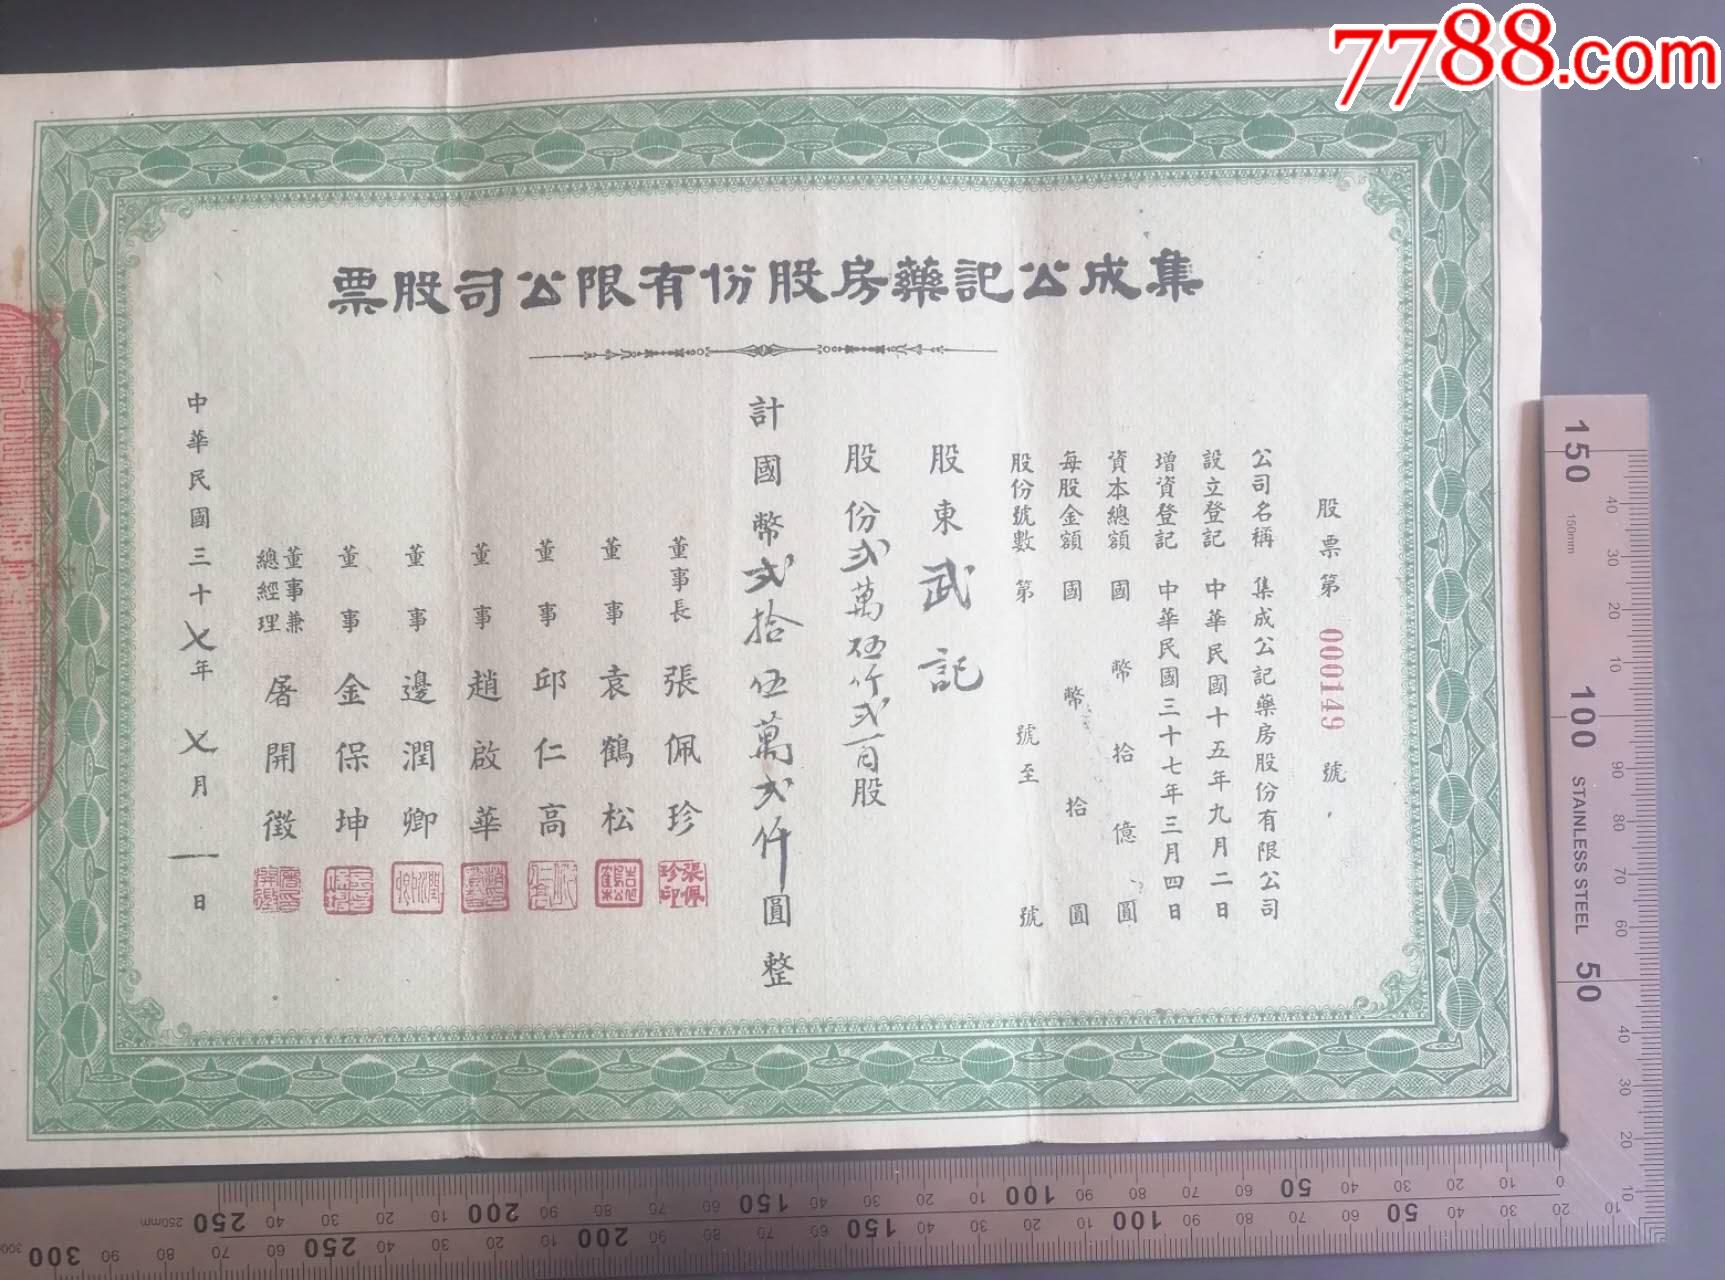 7788.com
集成公記藥房股份有限公司股票
股票第 000149 號
公司名稱 集成公記藥房股份有限公司
設立登記 中華民國十五年九月二日
增資登記 中華民國三十七年三月四日
資本總額 國幣拾億圓
每股金額 國幣拾圓
股份號數 第 號至 號
股東 武記
股份弍萬伍仟弍百股
計國幣弍拾伍萬弍仟圓整
董事長 張佩珍
張佩珍印
董事 袁鶴松
董事 邱仁高
董事 趙啟華
董事 邊潤卿
董事 金保坤
董事兼總經理 屠開徵
中華民國三十七年七月一日
150 100 50
150mm
STAINLESS STEEL
40 30 20 10 90 80 70 60 40 30 20 10
250mm 250 40 30 20 10 200 90 80 70 60 150 40 30 20 10 100 90 80 70 60 50 40 30 20 10 0
300 90 80 70 60 250 40 30 20 10 200 90 80 70 60 150 40 30 20 10 100 90 80 70 60 50 40 30 20 10